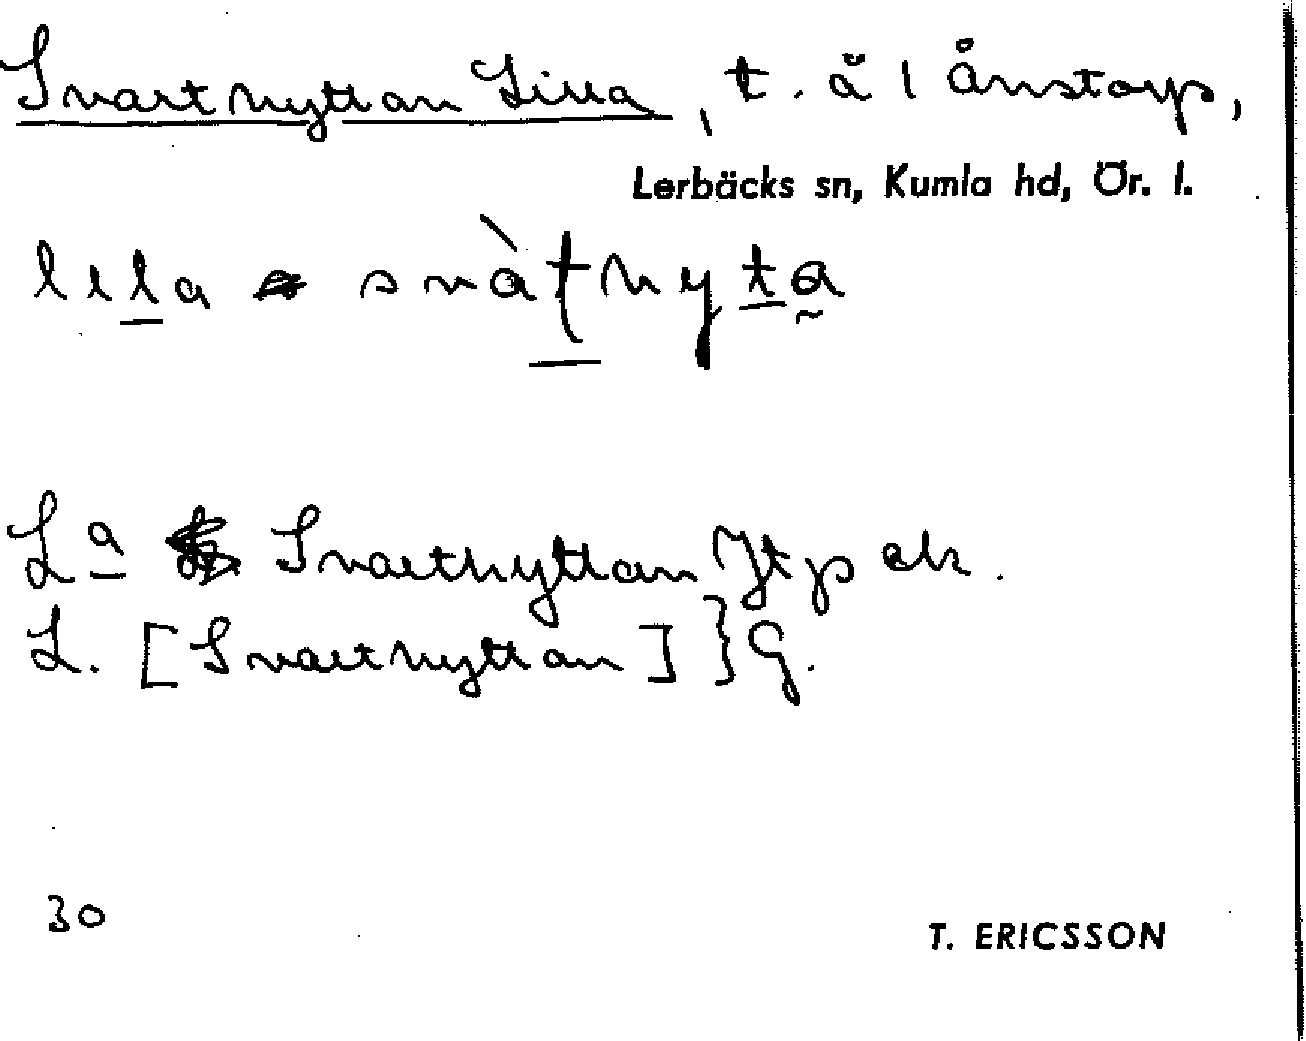 Svarthyttan Lilla, t. å 1 Ånstorp,
Lerbäcks sn, Kumla hd, Ör. l.
lıla svàthyta
La Svarthyttan Jtp ek.
L. [Svarthyttan] } G.
30
T. ERICSSON